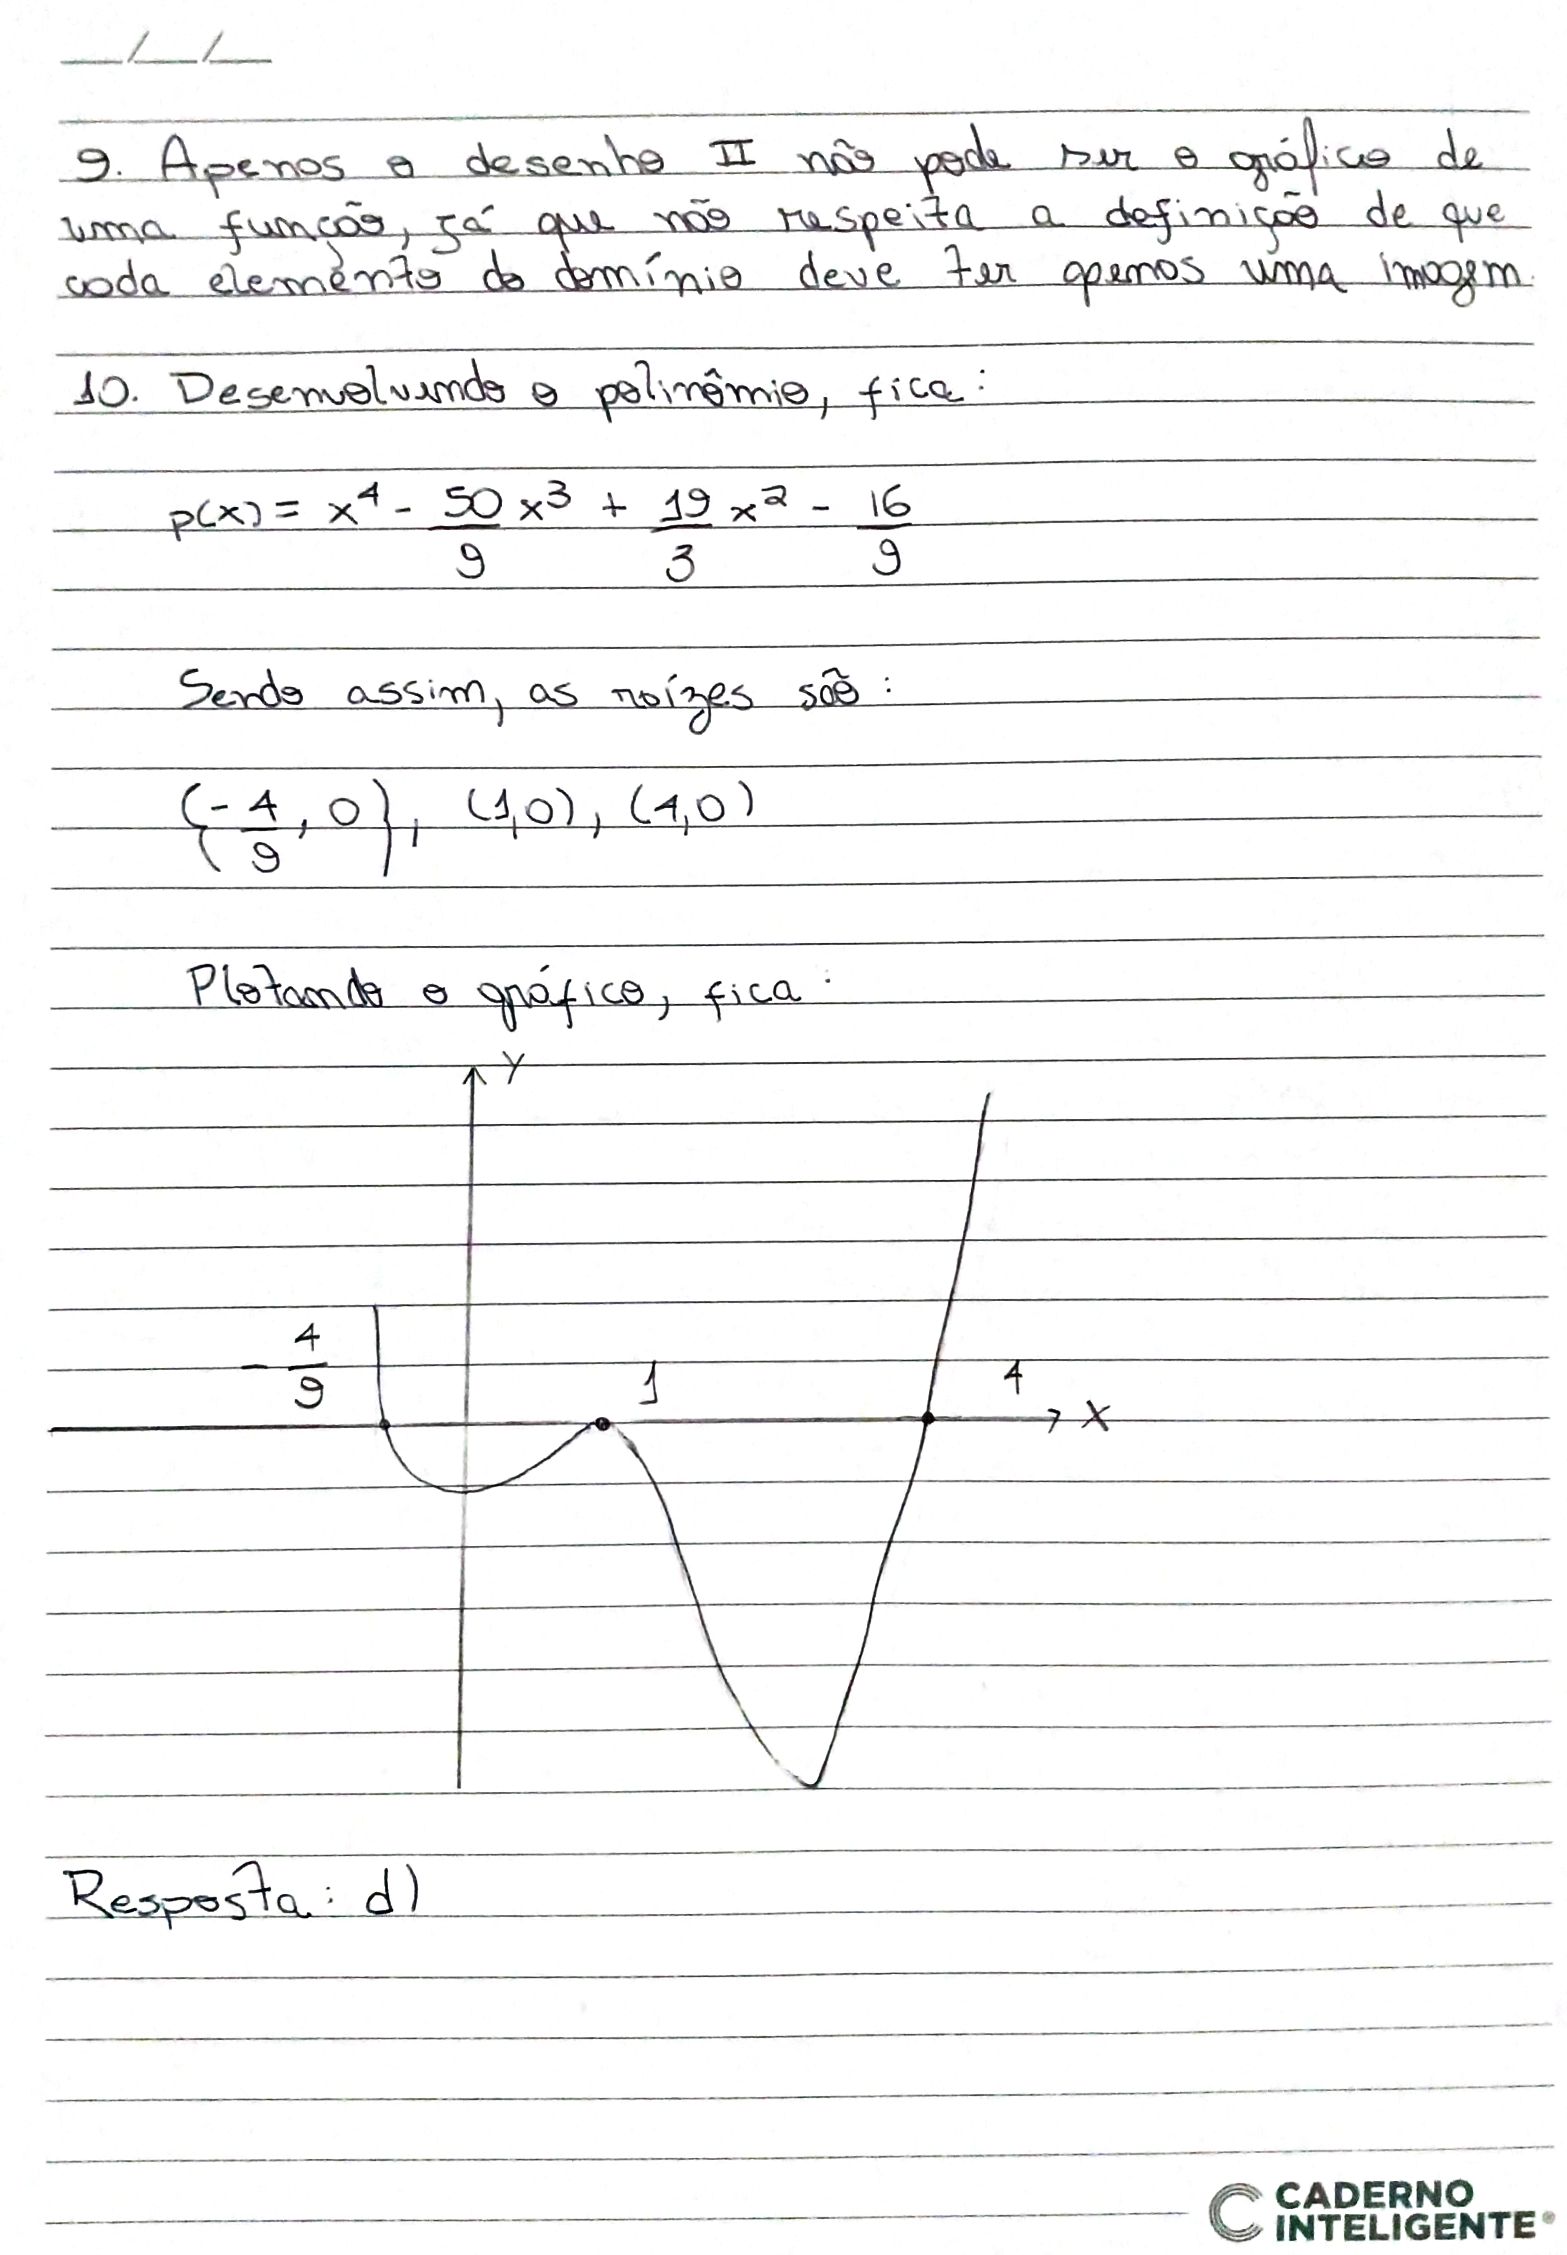 __/__/__
9. Apenas o desenho II não pode ser o gráfico de
uma função, já que não respeita a definição de que
cada elemento do domínio deve ter apenas uma imagem.
10. Desenvolvendo o polinômio, fica:
p(x) = x⁴ - 50/9 x³ + 19/3 x² - 16/9
Sendo assim, as raízes são:
(-4/9, 0), (1,0), (4,0)
Plotando o gráfico, fica:
Y
-4/9 1 4
X
Resposta: d)
CADERNO
INTELIGENTE®